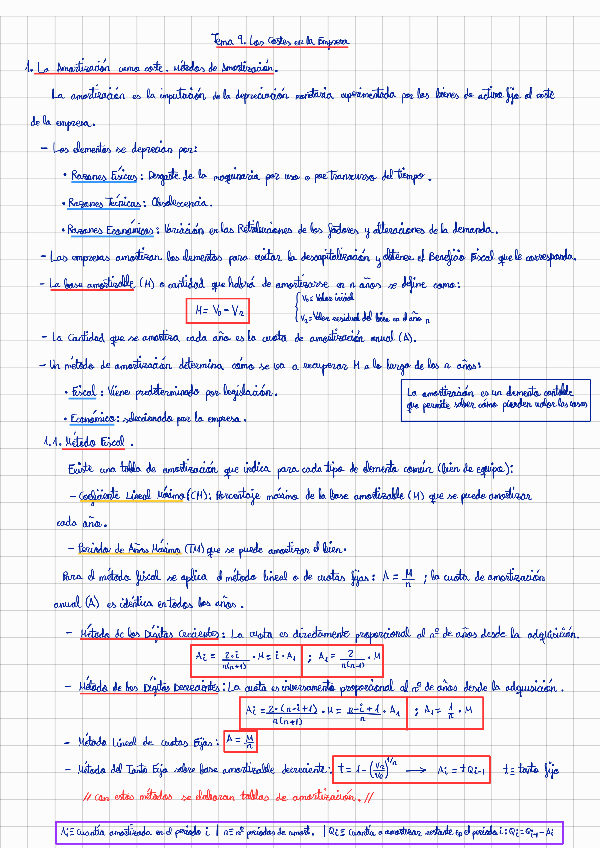 Tema 9. Los Costes en la Empresa
1. La Amortización como coste. Métodos de Amortización.
La amortización es la imputación de la depreciación monetaria experimentada por los bienes de activo fijo al coste
de la empresa.
- Los elementos se deprecian por:
• Razones Físicas: Desgaste de la maquinaria por uso o por transcurso del tiempo.
• Razones Técnicas: Obsolescencia.
• Razones Económicas: Variación en las Retribuciones de los factores y alteraciones de la demanda.
- Las empresas amortizan los elementos para evitar la descapitalización y obtener el Beneficio Fiscal que le corresponda.
- La base amortizable (M) o cantidad que habrá de amortizarse en n años se define como:
M = V₀ - Vₙ
{ V₀ = Valor inicial
Vₙ = Valor residual del bien en el año n
- La Cantidad que se amortiza cada año es la cuota de amortización anual (A).
- Un método de amortización determina cómo se va a recuperar M a lo largo de los n años:
• Fiscal: Viene predeterminado por legislación.
• Económico: seleccionado por la empresa.
La amortización es un elemento contable
que permite saber cómo pierden valor las cosas
1.1. Método Fiscal.
Existe una tabla de amortización que indica para cada tipo de elemento común (bien de equipo):
- Coeficiente Lineal Máximo (CM): Porcentaje máximo de la base amortizable (M) que se puede amortizar
cada año.
- Periodo de Años Máximo (TM) que se puede amortizar el bien.
Para el método fiscal se aplica el método lineal o de cuotas fijas: A = M/n ; la cuota de amortización
anual (A) es idéntica en todos los años.
- Método de los Dígitos Crecientes: La cuota es directamente proporcional al nº de años desde la adquisición.
Ai = 2·i/n(n+1) · M = i · A₁ ; A₁ = 2/n(n+1) · M
- Método de los Dígitos Decrecientes: La cuota es inversamente proporcional al nº de años desde la adquisición.
Ai = 2·(n-i+1)/n(n+1) · M = n-i+1/n · A₁ ; A₁ = 1/n · M
- Método Lineal de Cuotas Fijas: A = M/n
- Método del Tanto Fijo sobre base amortizable decreciente: t = 1 - (Vₙ/V₀)^1/n → Ai = t Qi-1 t ≡ tanto fijo
// Con estos métodos se elaboran tablas de amortización. //
Ai ≡ Cuantía amortizada en el periodo i | n ≡ nº periodos de amort. | Qi ≡ Cuantía a amortizar restante en el periodo i: Qi = Qi-1 - Ai